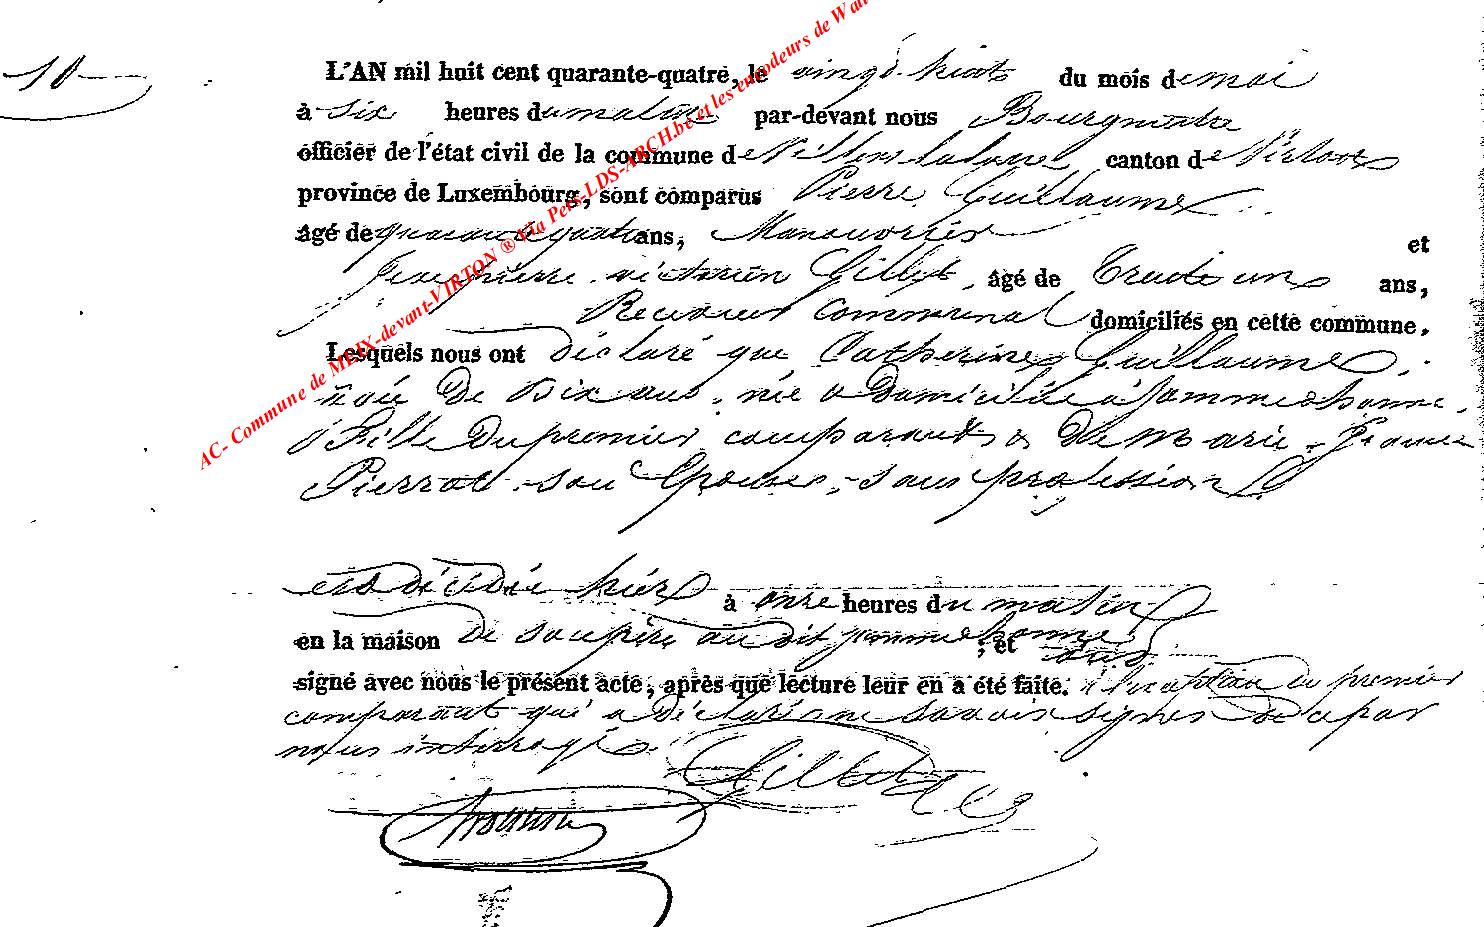 10
L'AN mil huit cent quarante-quatre, le vingt huit du mois de mai
à six heures du matin par-devant nous Bourgmestre
officier de l'état civil de la commune de Villers laloue canton de Virton
province de Luxembourg, sont comparus Pierre Guillaume
âgé de quarante quatre ans, Manouvrier et
Jean pierre victorien Gillet, âgé de Trente un ans,
Receveur Communal domiciliés en cette commune.
Lesquels nous ont déclaré que Catherine Guillaume
agée De dix ans, née & Domiciliée à Sommethonne,
fille Du premier comparant & De Marie
Pierrot son Epouse, sans profession
est décédée hier à onze heures du matin
en la maison De son père au dit Sommethonne, et ont
signé avec nous le présent acte, après que lecture leur en a été faite. à l'exception du premier
comparant qui a Déclaré ne savoir signer De ce par
nous interrogé.
Gillet
AC- Commune de MEIX-devant-VIRTON ® Via Pers-LDS-ARCH.be et les encodeurs de